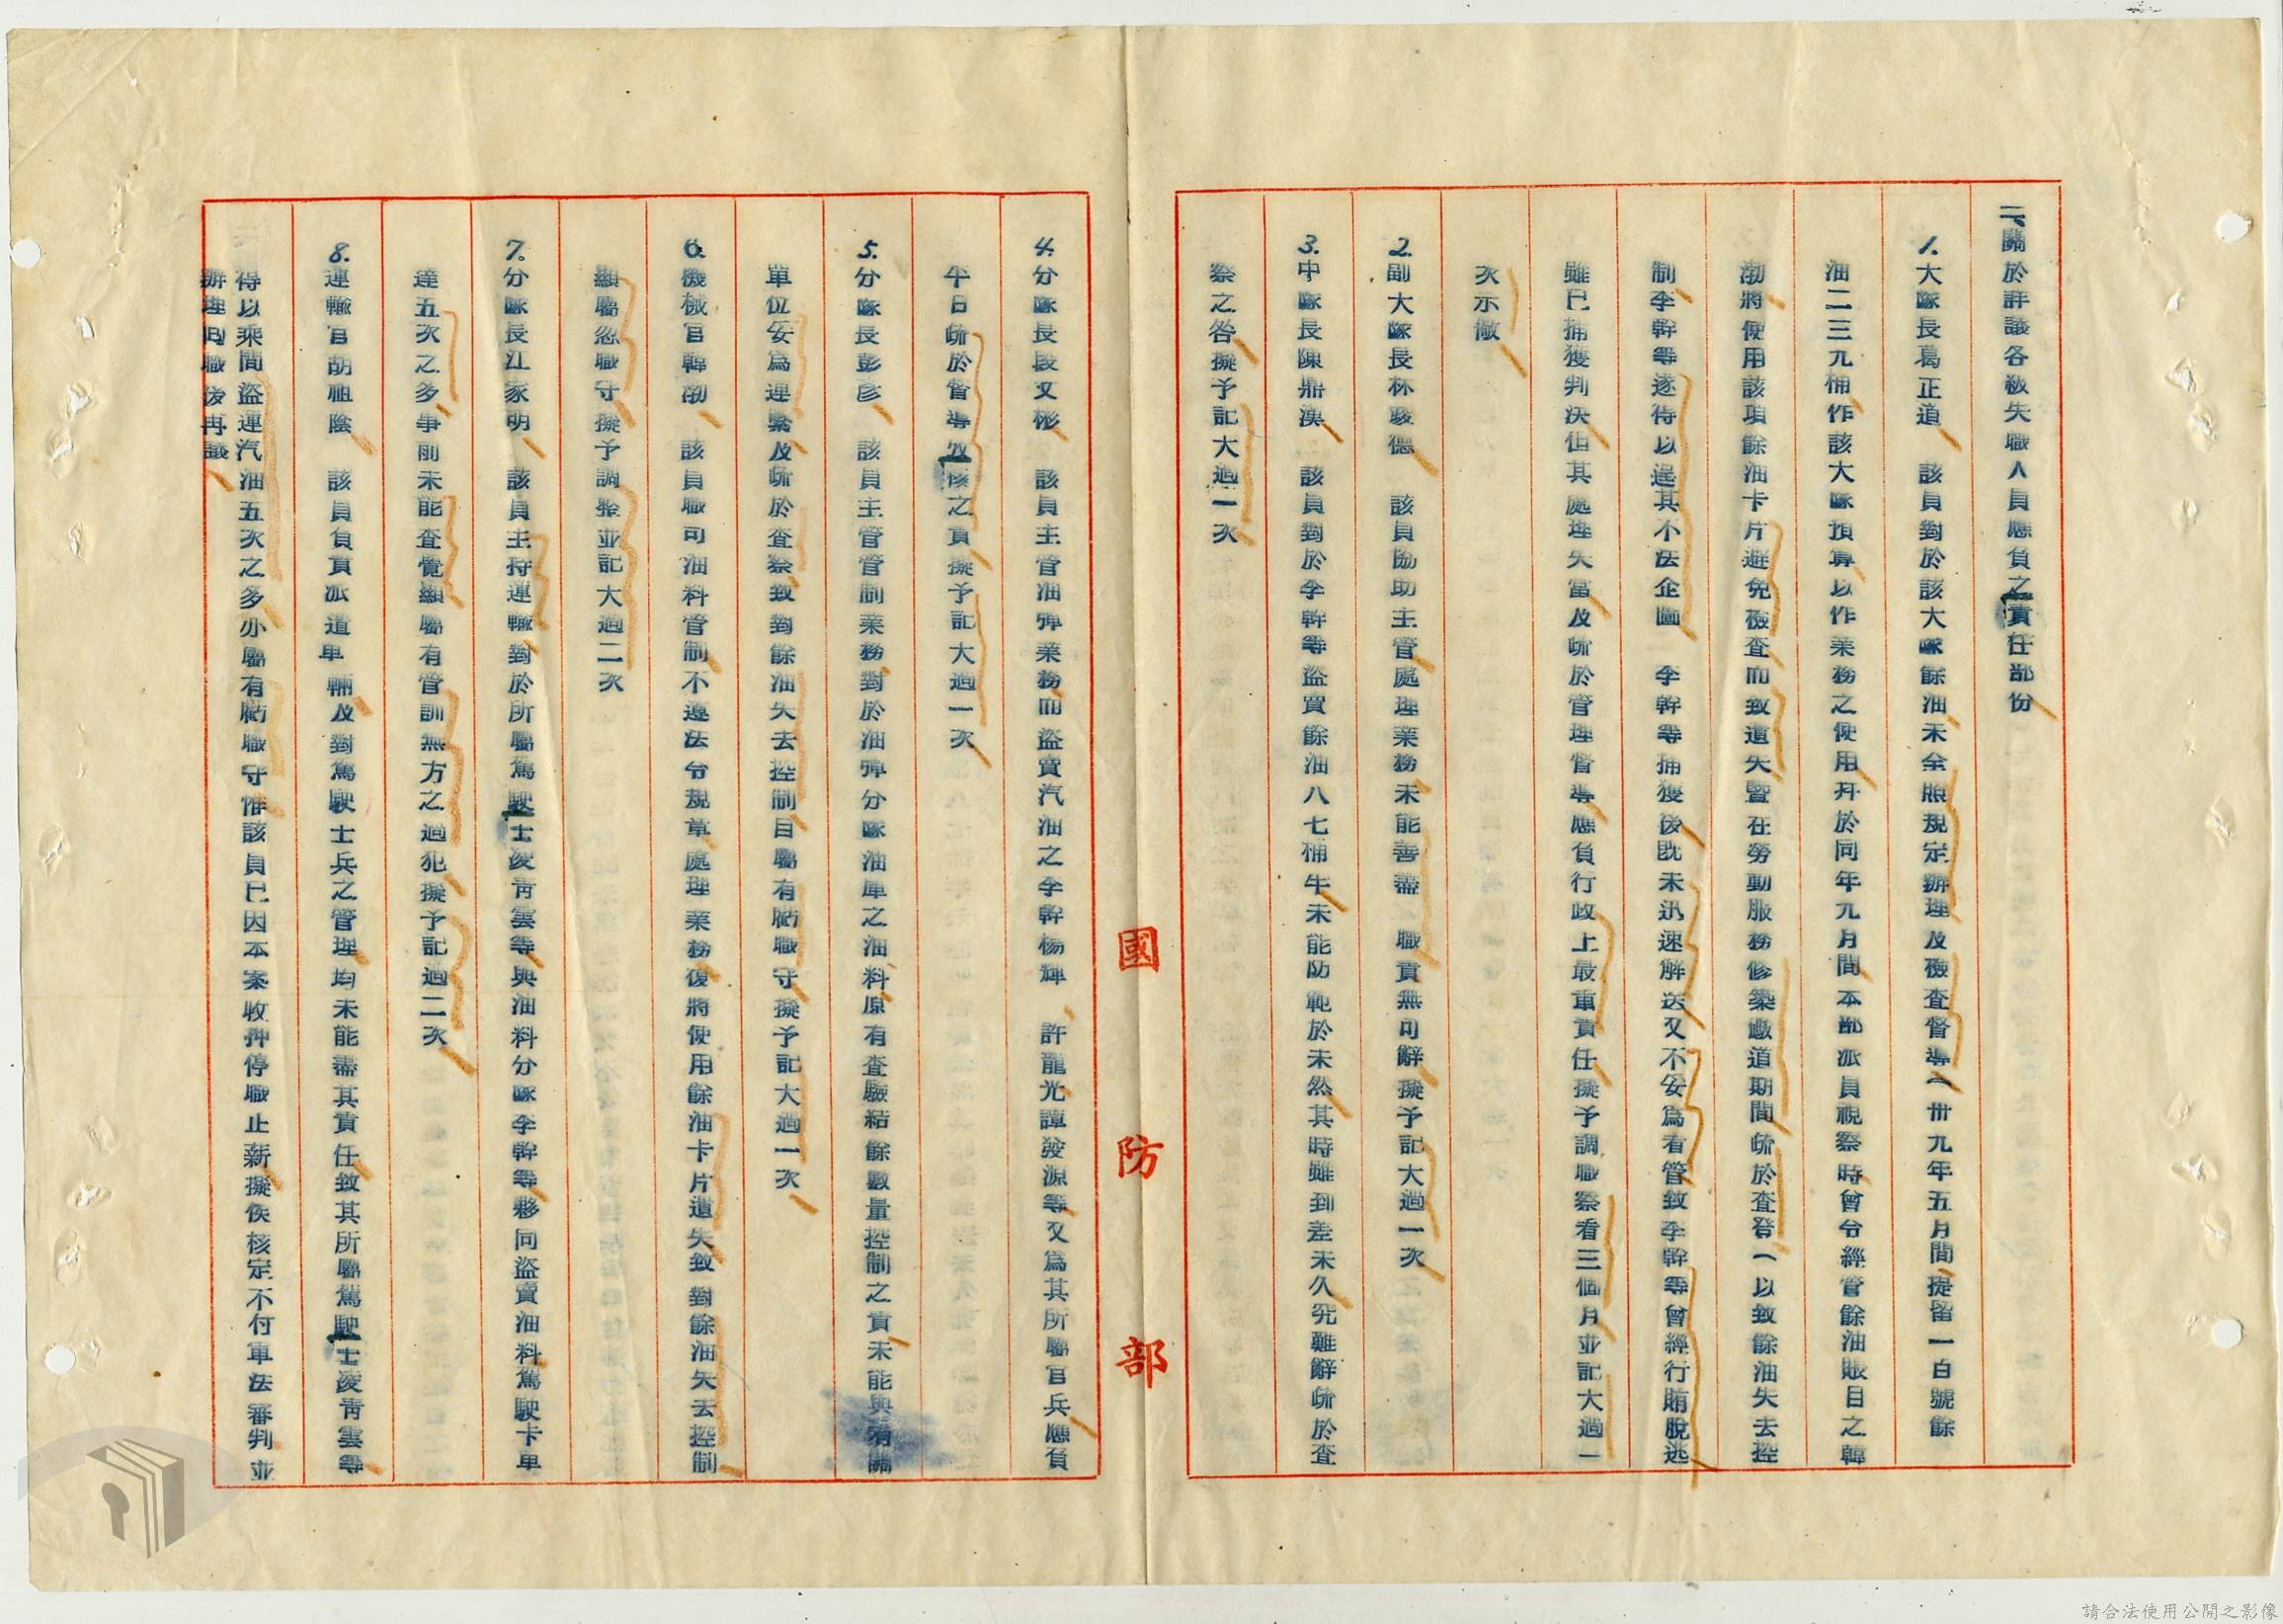 二、關於詳議各級失職人員應負之責任部份
1.大隊長葛正道、該員對於該大隊餘油、未全照規定辦理、及檢查督導、(卅九年五月間、提留一百號餘
油二三九桶、作該大隊預算、以作業務之使用、并於同年九月間、本部派員視察時、曾令經管餘油賬目之韓
渤、將使用該項餘油卡片、避免檢查、而致遺失、暨在勞動服務修築礮道期間、疏於查登、(以致餘油失去控
制、李幹等遂得以逞其不法企圖、李幹等捕獲後、既未迅速解送、又不妥為看管、致李幹等曾經行賄脫逃、
雖已捕獲判決、但其處理失當、及疏於管理督導、應負行政上最重責任、擬予調職察看三個月、並記大過一
次示儆、
2.副大隊長林駿德、該員協助主管、處理業務、未能善盡、職責無可辭、擬予記大過一次、
3.中隊長陳鼎漢、該員對於李幹等盜賣餘油八七桶半、未能防範於未然、其時雖到差未久、究難辭疏於查
察之咎、擬予記大過一次
4.分隊長段文彬、該員主管油彈業務、而盜賣汽油之李幹楊輝、許龍光、譚發源等、又為其所屬官兵、應負
平日疏於督導考核之責、擬予記大過一次、
5.分隊長彭彦、該員主管管制業務、對於油彈分隊油庫之油料、原有查驗結餘數量控制之責、未能與有關
單位妥為連繫、及疏於查察、致對餘油失去控制、自屬有虧職守、擬予記大過一次、
6.機械官韓渤、該員職司油料管制、不遵法令規章、處理業務、復將使用餘油卡片遺失、致對餘油失去控制、
顯屬忽職守、擬予調整並記大過二次
7.分隊長江家明、該員主持運輸、對於所屬駕駛士凌靑雲等、與油料分隊李幹等、夥同盜賣油料、駕駛卡車
達五次之多、事前未能查覺、顯屬有管訓無方之過犯、擬予記過二次、
8.運輸官胡祖蔭、該員負責派遣車輛、及對駕駛士兵之管理、均未能盡其責任、致其所屬駕駛士凌靑雲等、
得以乘間盜運汽油五次之多、亦屬有虧職守、惟該員已因本案收押停職止薪、擬俟核定不付軍法審判、並
辦理回職後再議、
國防部
請合法使用公開之影像